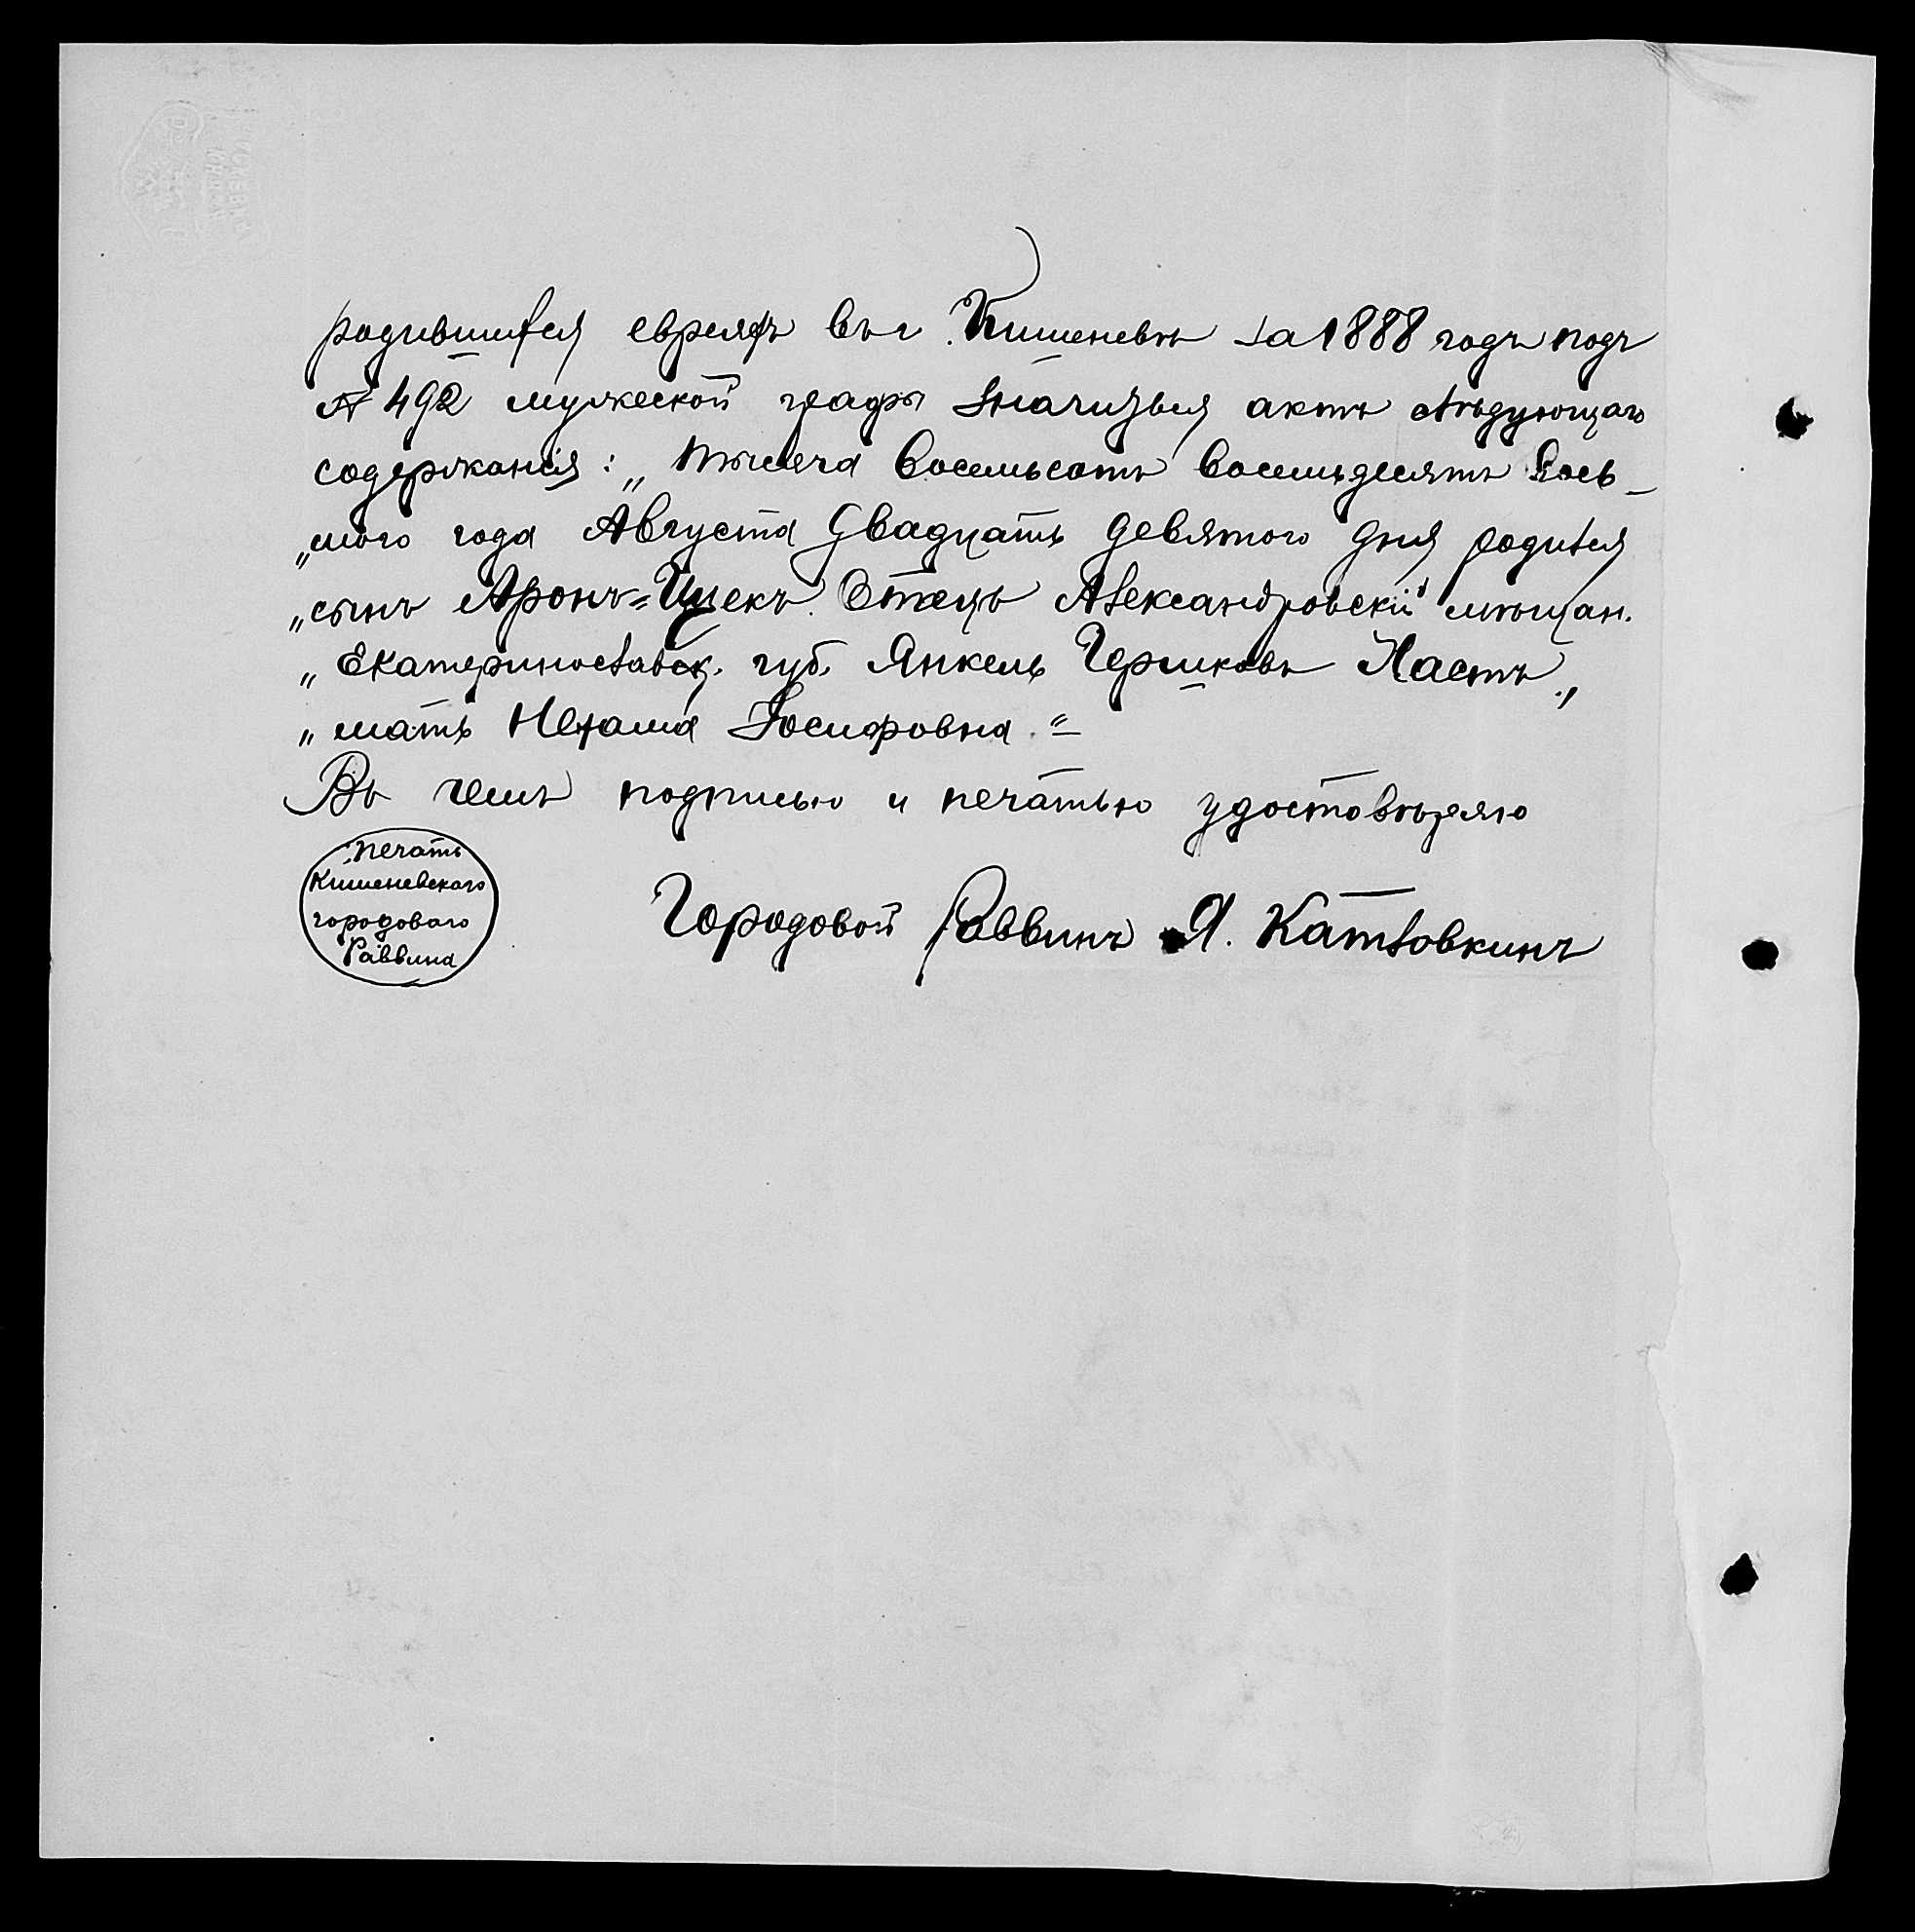 родившихся евреяхъ въ г. Кишеневѣ за 1888 годъ подъ
№ 492 мужеской графы значится актъ слѣдующаго
содержанія: „тысяча восемьсотъ восемьдесятъ вось-
„мого года Августа двадцать девятого дня родился
„сынъ Аронъ=Ицекъ. Отецъ Александровскій мѣщан.
„Екатеринославск. губ. Янкель Гершковъ Хастъ,
„мать Нехама Іосифовна."
Въ чемъ подписью и печатью удостовѣряю
печать
Кишеневского
городоваго
Раввина
Городовой Раввинъ Я. Катловкинъ